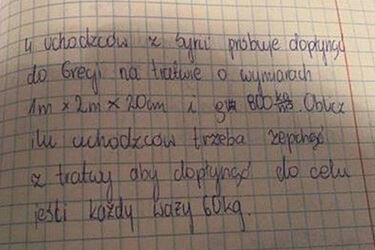 4 uchodźców z Syrii próbuje dopłynąć
do Grecji na tratwie o wymiarach
1m x 2m x 20cm i 800 kg/m3. Oblicz
ilu uchodźców trzeba zepchnąć
z tratwy aby dopłynąć do celu
jeśli każdy waży 60kg.